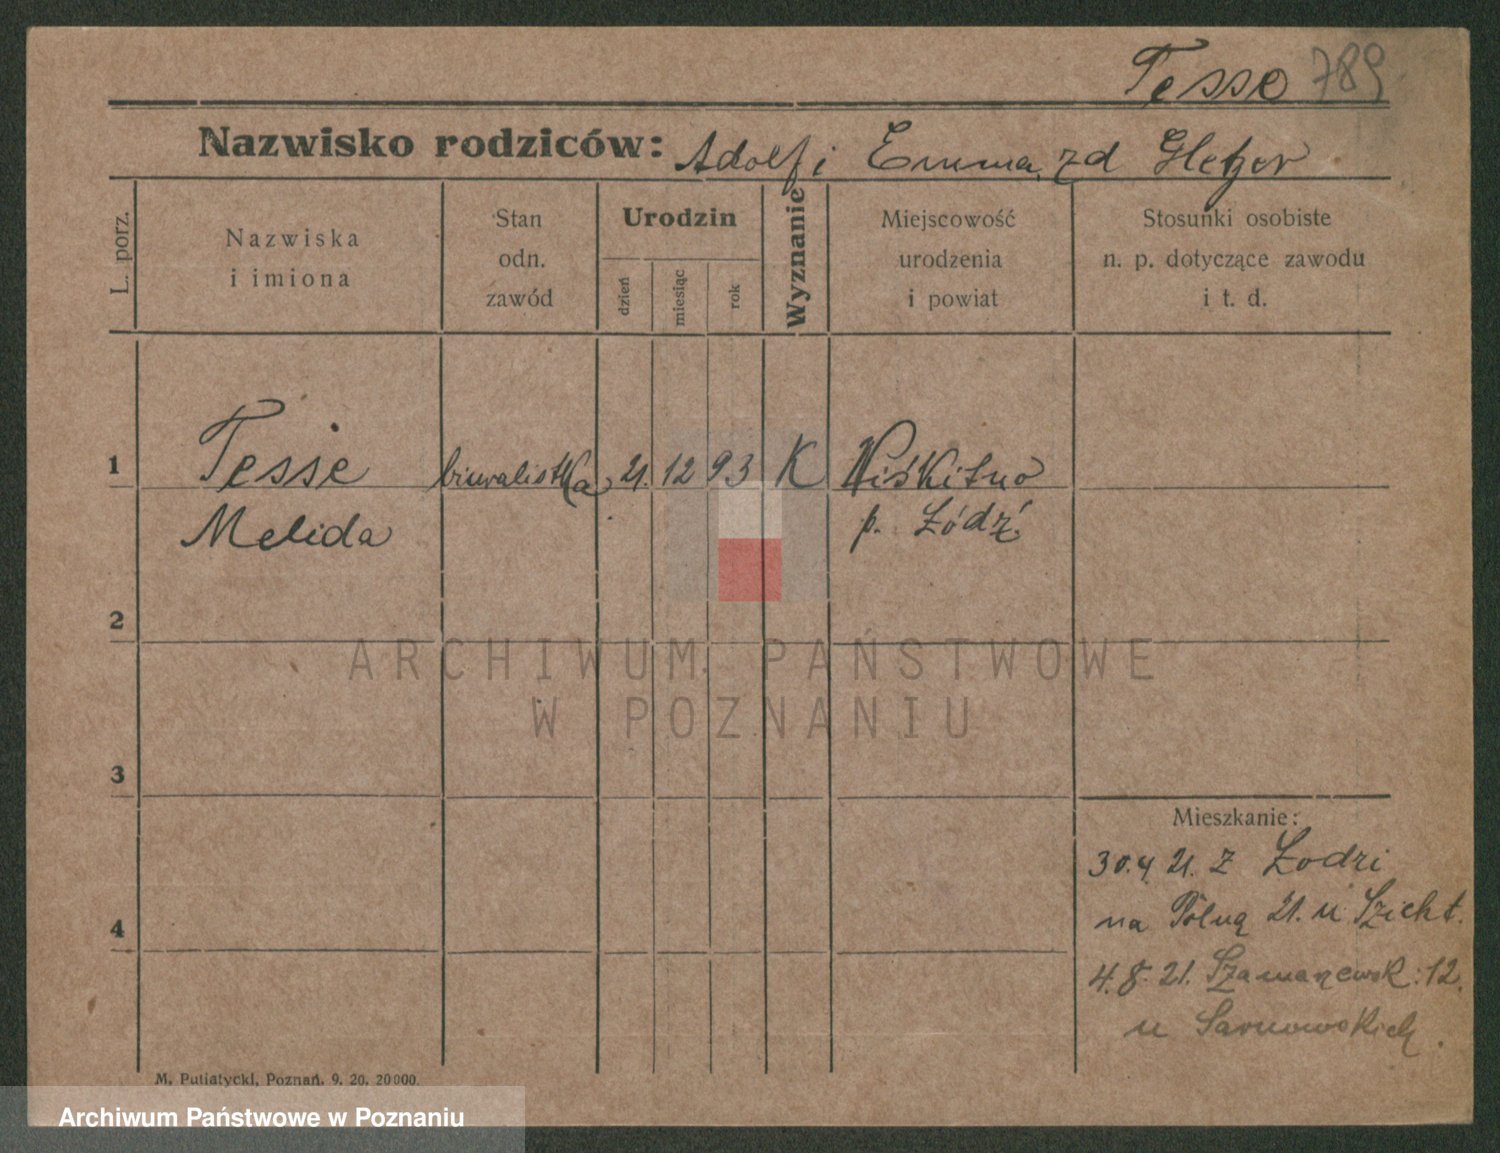 Tesse 789
Nazwisko rodziców: Adolf i Emma zd Gletzer
L. porz.
Nazwiska
i imiona
Stan
odn.
zawód
Urodzin
dzień
miesiąc
rok
Wyznanie
Miejscowość
urodzenia
i powiat
Stosunki osobiste
n. p. dotyczące zawodu
i t. d.
1 Tesse biuralistka 21. 12 93 K Wiskitno
Melida p. Łódź
2
3
4
Mieszkanie:
30.4 21. z Łodzi
na Polną 21. u Szicht.
4.8.21. Szamarzewsk: 12.
u Sarnowskich.
M. Putiatycki, Poznań. 9. 20. 20000.
ARCHIWUM PAŃSTWOWE
W POZNANIU
Archiwum Państwowe w Poznaniu